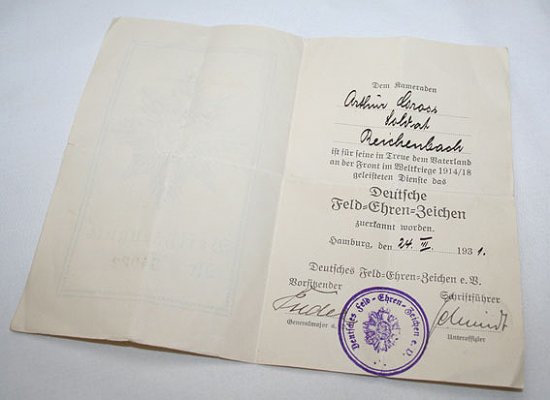 Dem Kameraden
Arthur Gross
Soldat
Reichenbach
ist für seine in Treue dem Vaterland
an der Front im Weltkriege 1914/18
geleisteten Dienste das
Deutsche
Feld=Ehren=Zeichen
zuerkannt worden.
Hamburg, den 24. III. 1931.
Deutsches Feld=Ehren=Zeichen e.V.
Vorsitzender Schriftführer
Schmidt
Generalmajor a. Unteroffizier
Deutsches Feld-Ehren-Zeichen e.V.